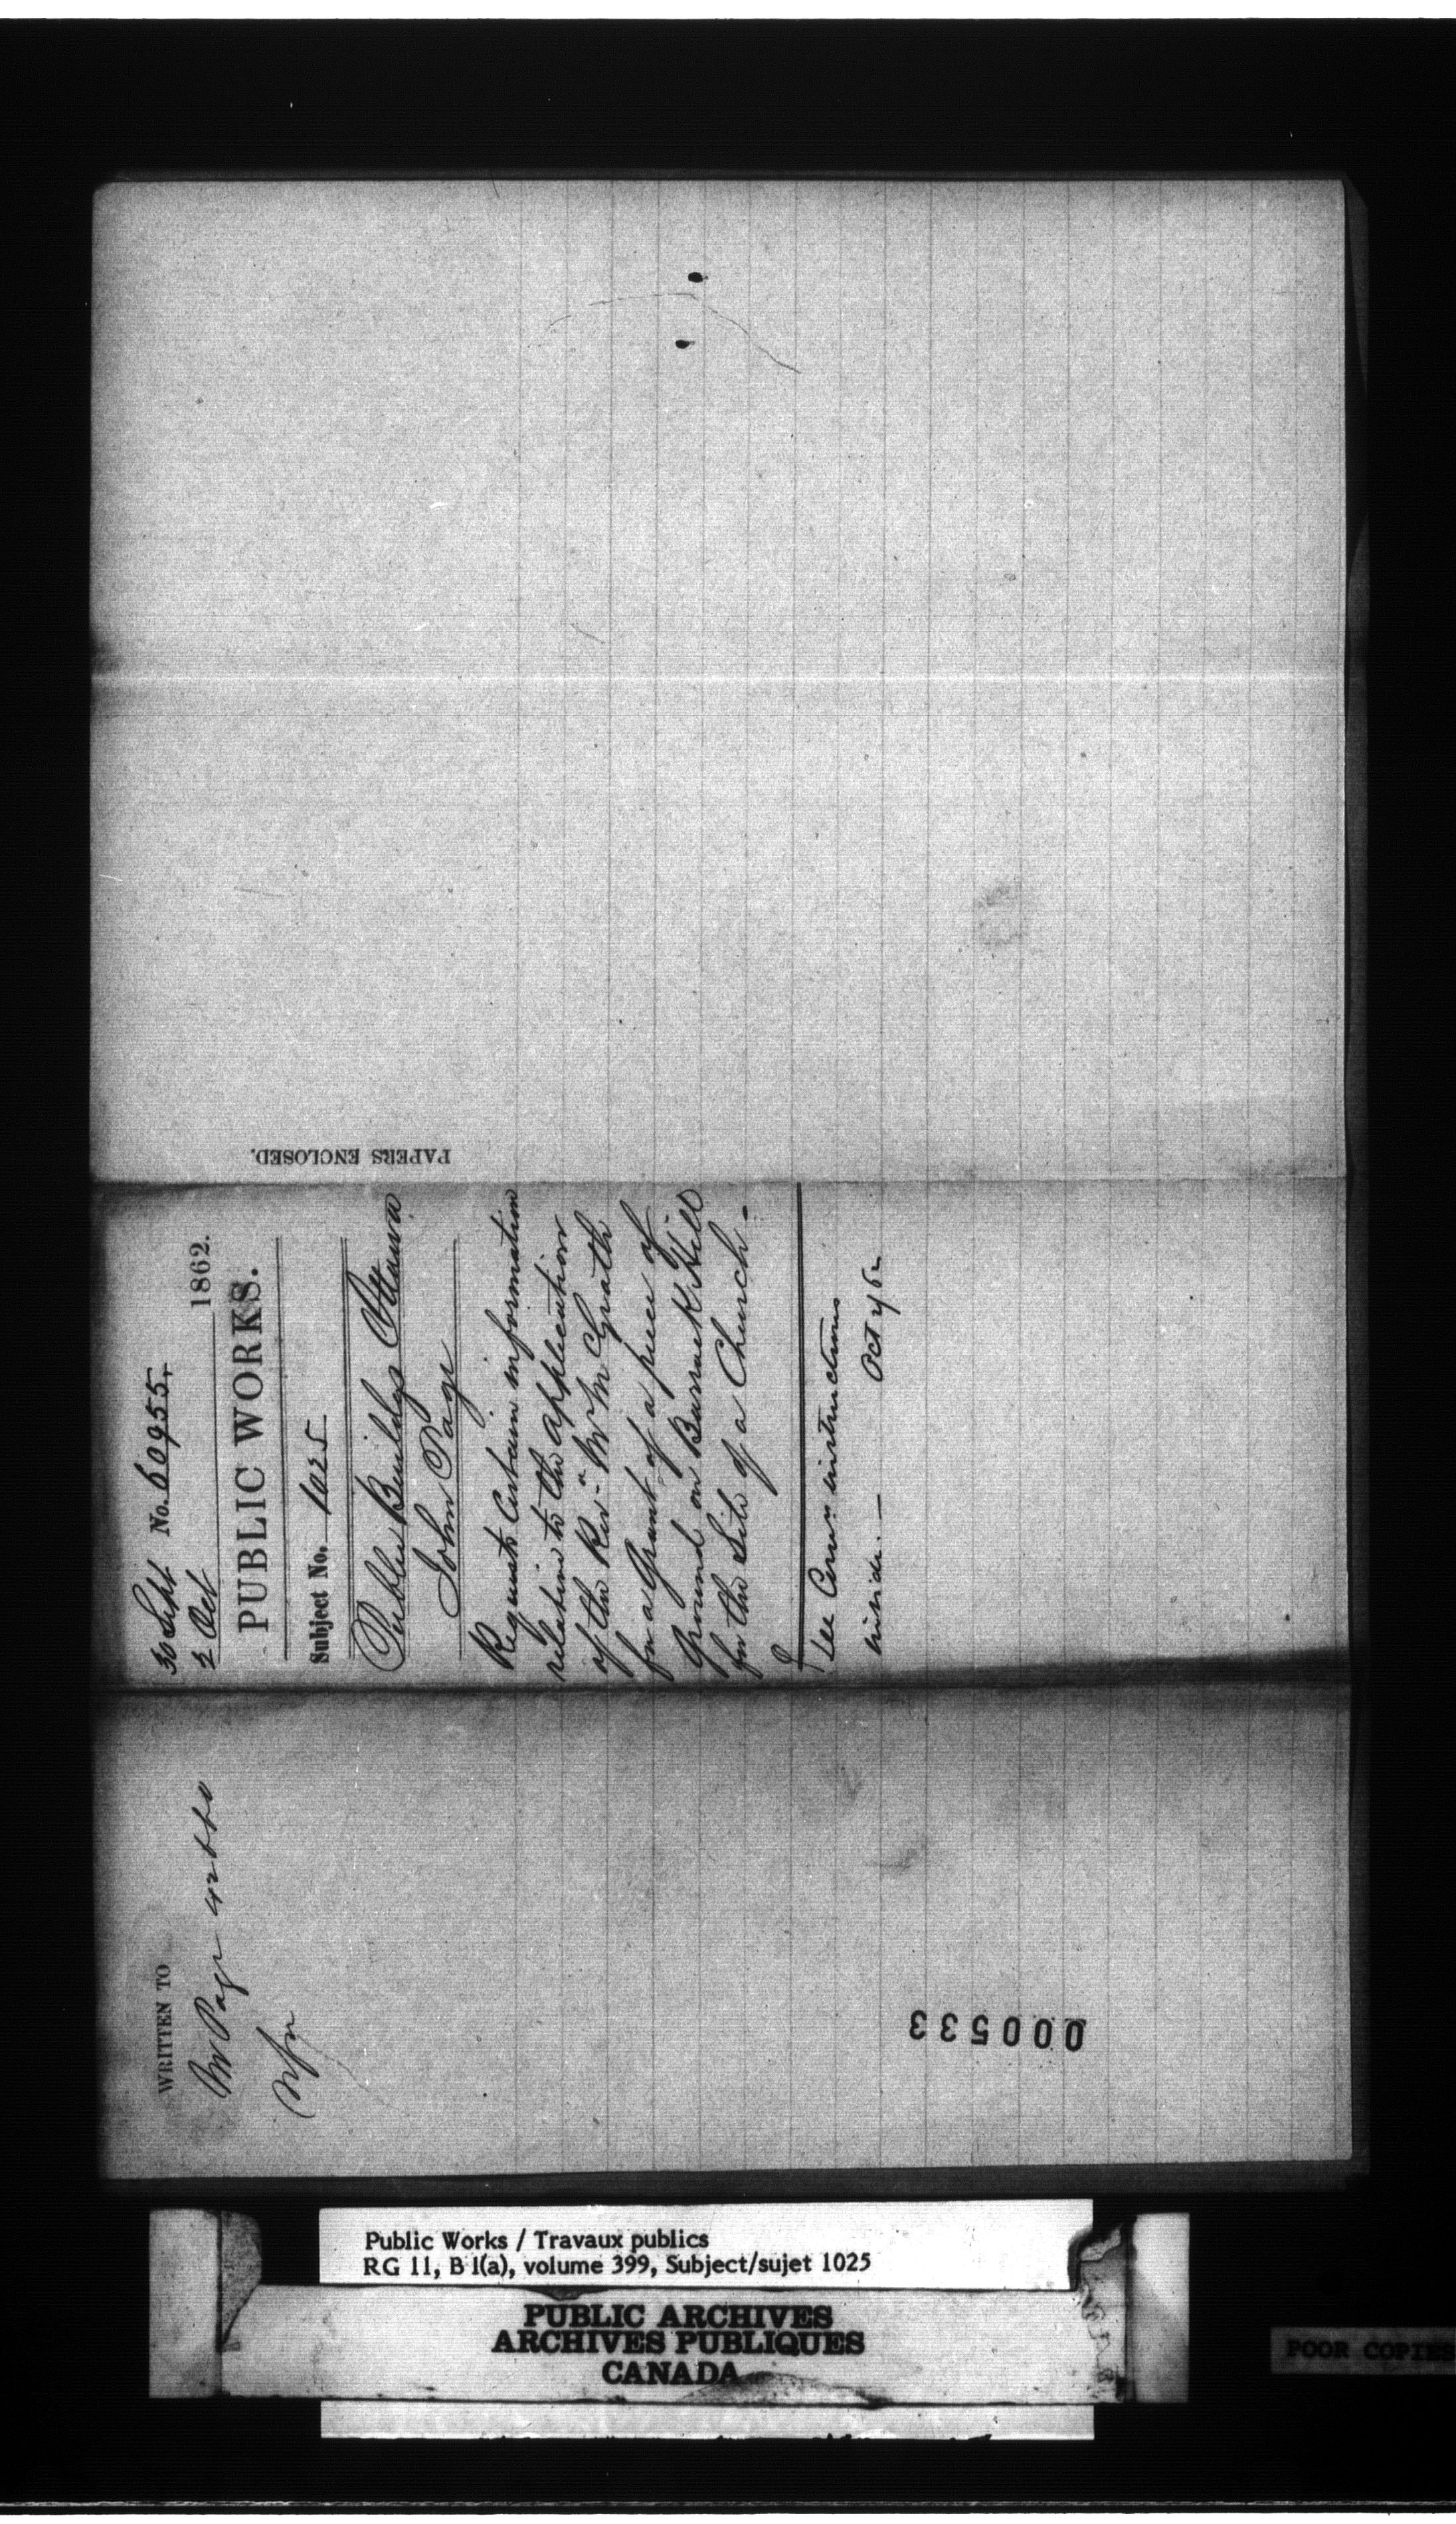 PAPERS ENCLOSED.
30 Sept No. 60955
2 Oct 1862.
PUBLIC WORKS.
Subject No. 1025
Public Buildgs Ottawa
John Page
Requests Certain information
relative to the application
of the Revd Mr McGrath
for a Grant of a piece of
Ground on Barrack Hill
for the Site of a Church -
See Comrs instructions
inside. — Oct 4/62
WRITTEN TO
Mr Page
000533
Public Works / Travaux publics
RG 11, B 1(a), volume 399, Subject/sujet 1025
PUBLIC ARCHIVES
ARCHIVES PUBLIQUES
CANADA
POOR COPIES